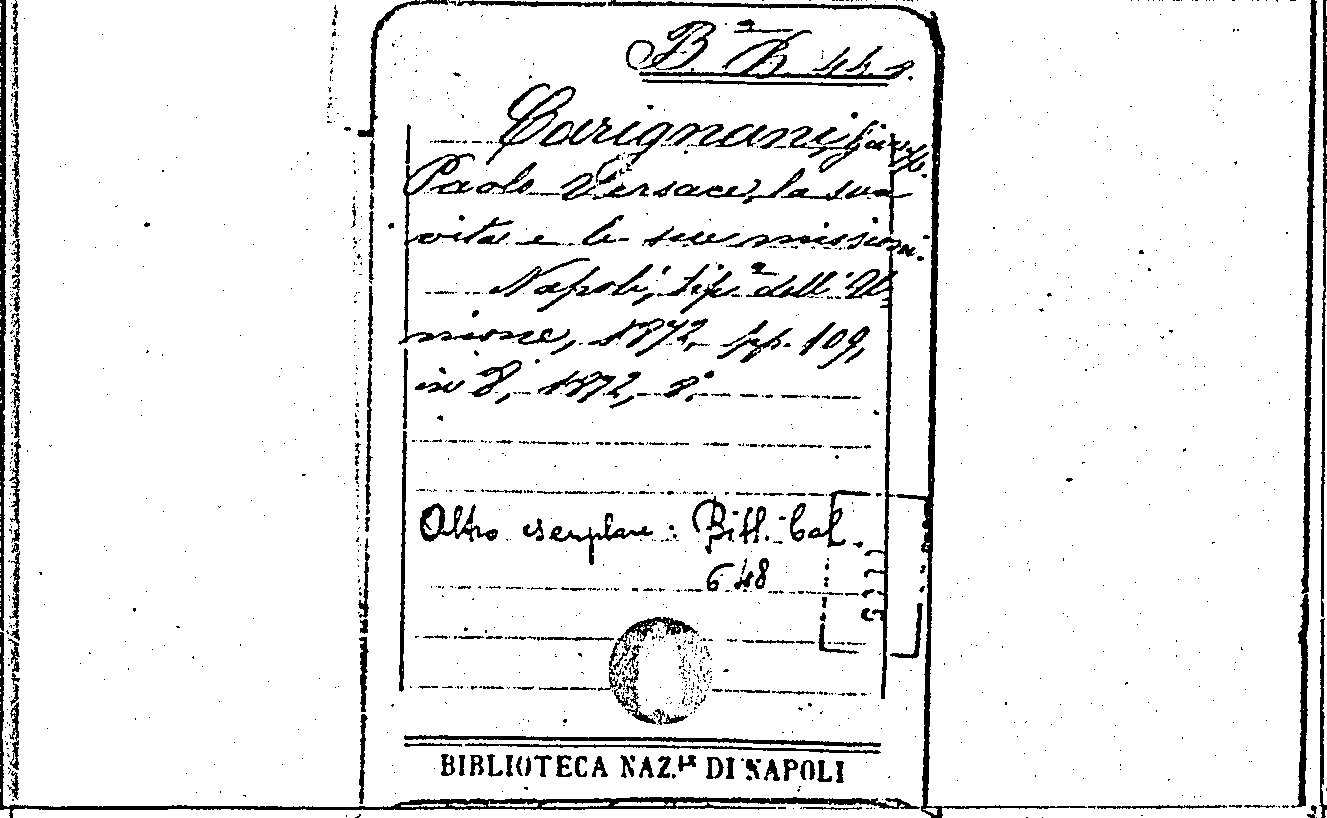 Carignani, Giusep.
Paolo Versace, la sua
vita e le sue missioni.
Napoli, tip.ª dell'U-
nione, 1872, pp. 109,
in 8, 1872, 8.°
Altro esemplare: Bibl. Cal.
648
BIBLIOTECA NAZ.LE DI NAPOLI